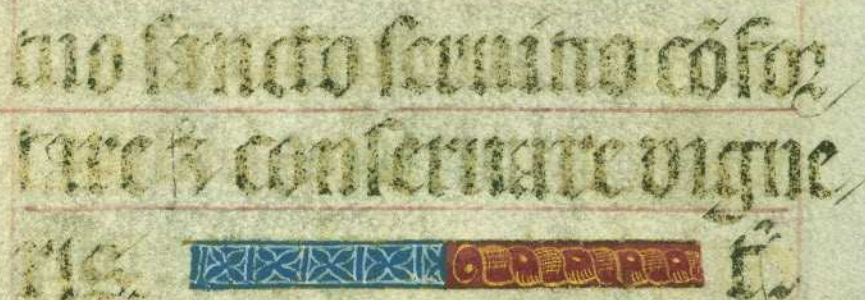 tuo sancto seruitio cõfor
tare & conseruare digne
ris.